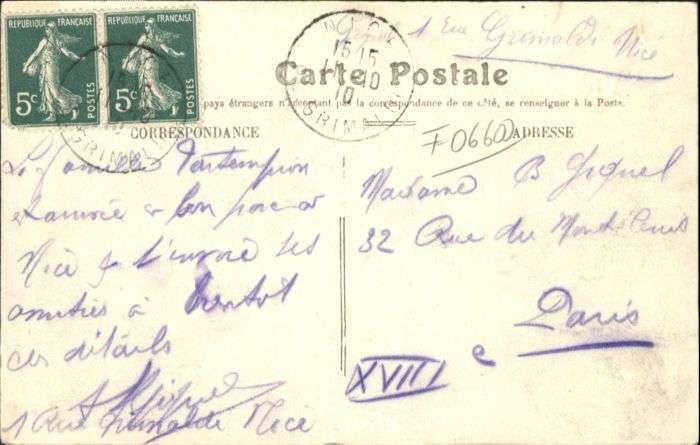 REPUBLIQUE FRANÇAISE REPUBLIQUE FRANÇAISE
5c POSTES 5c POSTES
NICE
15 15
10
10
GRIMALDI
1 rue Grimaldi Nice
Carte Postale
pays étrangers n'acceptant pas la correspondance de ce côté, se renseigner à la Poste.
CORRESPONDANCE
ADRESSE
F0660
La famille Partempion
est arrivée à bon port à
Nice & t'envoie ses
amitiés à bientôt
des détails
1 Rue Grimaldi Nice
Madame B
32 Rue du Mont Cenis
Paris
XVIII e